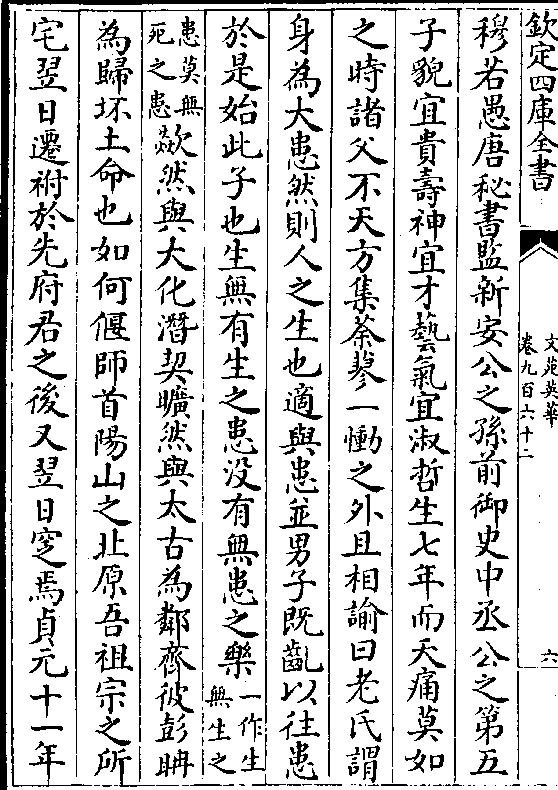 欽定四庫全書
文苑英華
卷九百六十二
六
穆若愚唐秘書監新安公之孫前御史中丞公之第五
子貌宜貴壽神宜才藝氣宜淑哲生七年而夭痛莫如
之時諸父不天方集荼蓼一慟之外且相諭曰老氏謂
身為大患然則人之生也適與患並男子既齓以往患
於是始此子也生無有生之患没有無患之樂一作生無生之
患莫無死之患歘然與大化潛契曠然與太古為鄰齊彼彭聃
為歸坏土命也如何偃師首陽山之北原吾祖宗之所
宅翌日遷祔於先府君之後又翌日窆焉貞元十一年